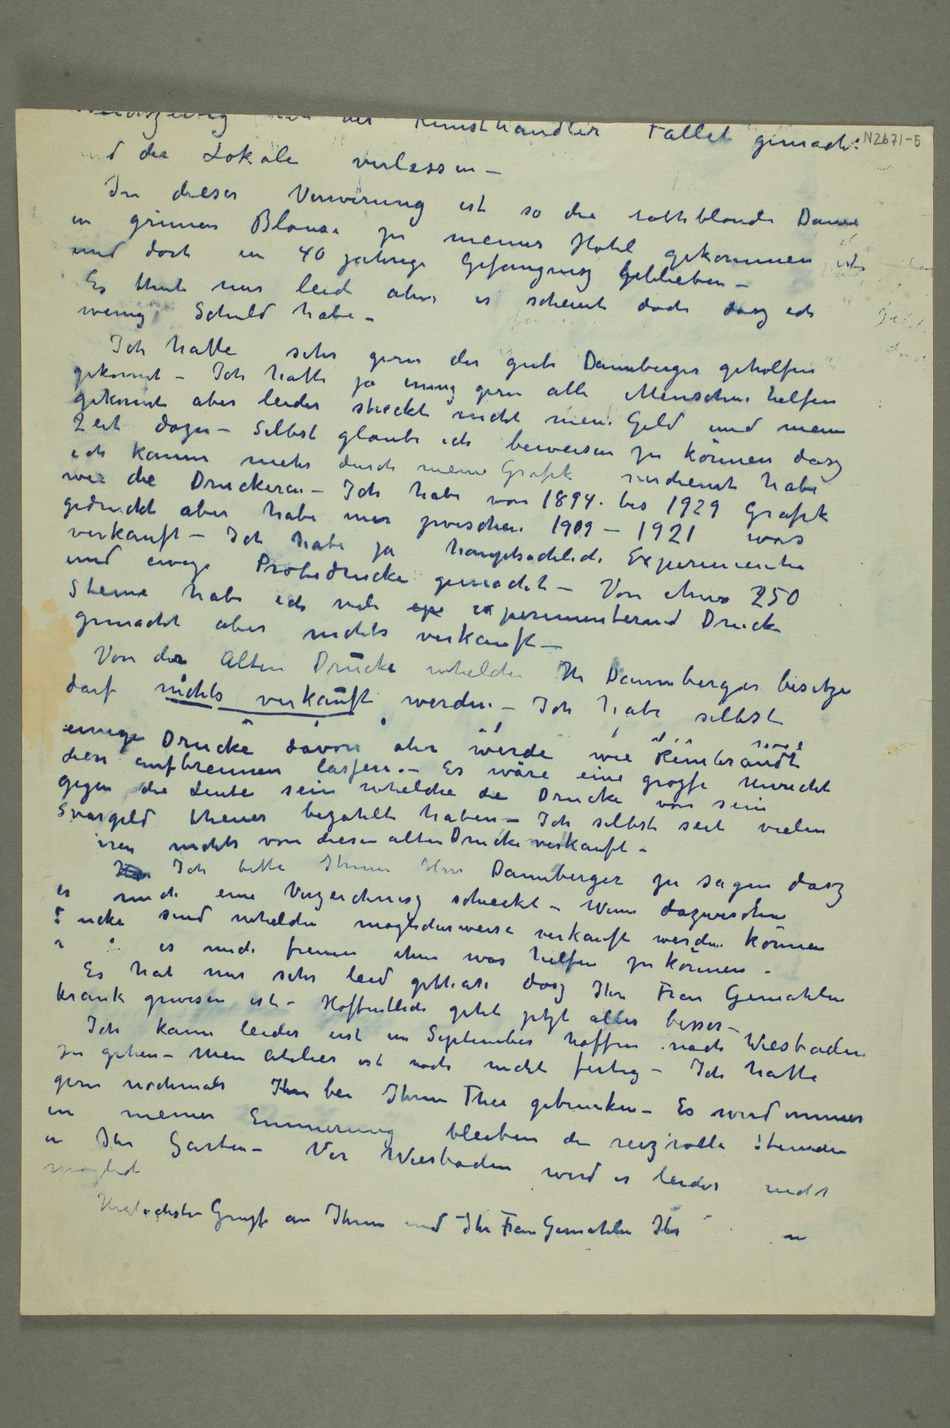 der Kunsthändler Fallet gemacht N2671-5
und die Lokale verlassen –
In dieser Verwirrung ist so die rothblonde Dame
in grünen Blouse zu meines Hotel gekommen
und dort in 40 jährige Gefängnisz geblieben –
Es thut mir leid aber es scheint doch dasz ich
wenig Schuld habe –
Ich hatte sehr gern der gute Dannberger geholfen
gekonnt – Ich hatte ja innig gern alle Menschen helfen
gekonnt aber leider streckt nicht mein Geld und mein
Zeit dazu – Selbst glaube ich beweisen zu können dasz
ich kaum mehr durch meine Grafik verdient habe
wie die Druckeren – Ich habe von 1894. bis 1929 Grafik
gedruckt aber habe nur zwischen 1909 – 1921 was
verkauft – Ich habe ja hauptsachlich Experimente
und einige Probedrucke gemacht – Von etwa 250
Steine habe ich viele experimenternd Drucke
gemacht aber nichts verkauft –
Von der Alten Drücke whelche Hr Dannberger besitze
darf nichts verkauft werden – Ich habe selbst
einige Drucke davon aber werde wie Rembrandt
diese aufbrennen lassen. – Es wäre eine grosse Unrecht
gegen die Leute sein whelche die Drucke von sein
Svargeld theuer bezahlt haben – Ich selbst seit vielen
nichts von diesen alten Drucke verkauft –
Ich bitte Ihnen Herr Dannberger zu sagen dasz
er mich eine Verzeichnisz schickt – Wenn dazwischen
sind whelche moglicherweise verkauft werden können
es mich freuen ihm was helfen zu können –
Es hat mir sehr leid gethan dasz Ihr Frau Gemahlin
krank gewesen ist – Hoffentlich geht jetzt alles besser –
Ich kann leider erst im September hoffen nach Wiesbaden
zu gehen – Mein Atelier ist noch nicht fertig – Ich hatte
gern nochmals bei Ihnen Thee getrunken – Es wird immer
in meiner Erinnerung bleiben die reizvolle Stunden
in Ihr Garten – Vor Wiesbaden wird es leider nicht
möglich
Herzlichste Grusse an Ihnen und Ihr Frau Gemahlin Ihr